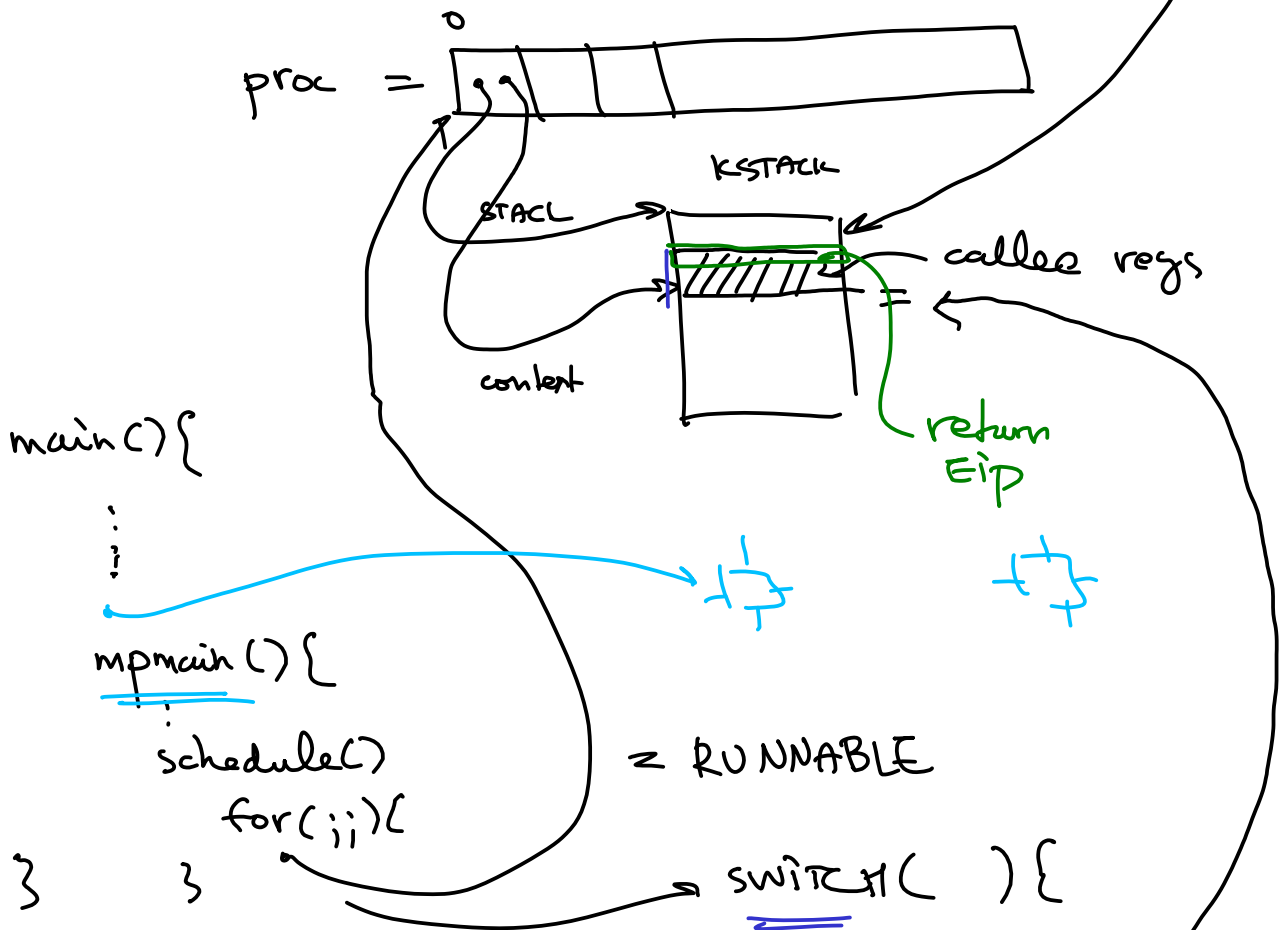 0
proc =
KSTACK
STACL
callee regs
=
context
return
Eip
main(){
mpmain(){
schedule()
= RUNNABLE
for(;;){
}
}
SWITCH( ){